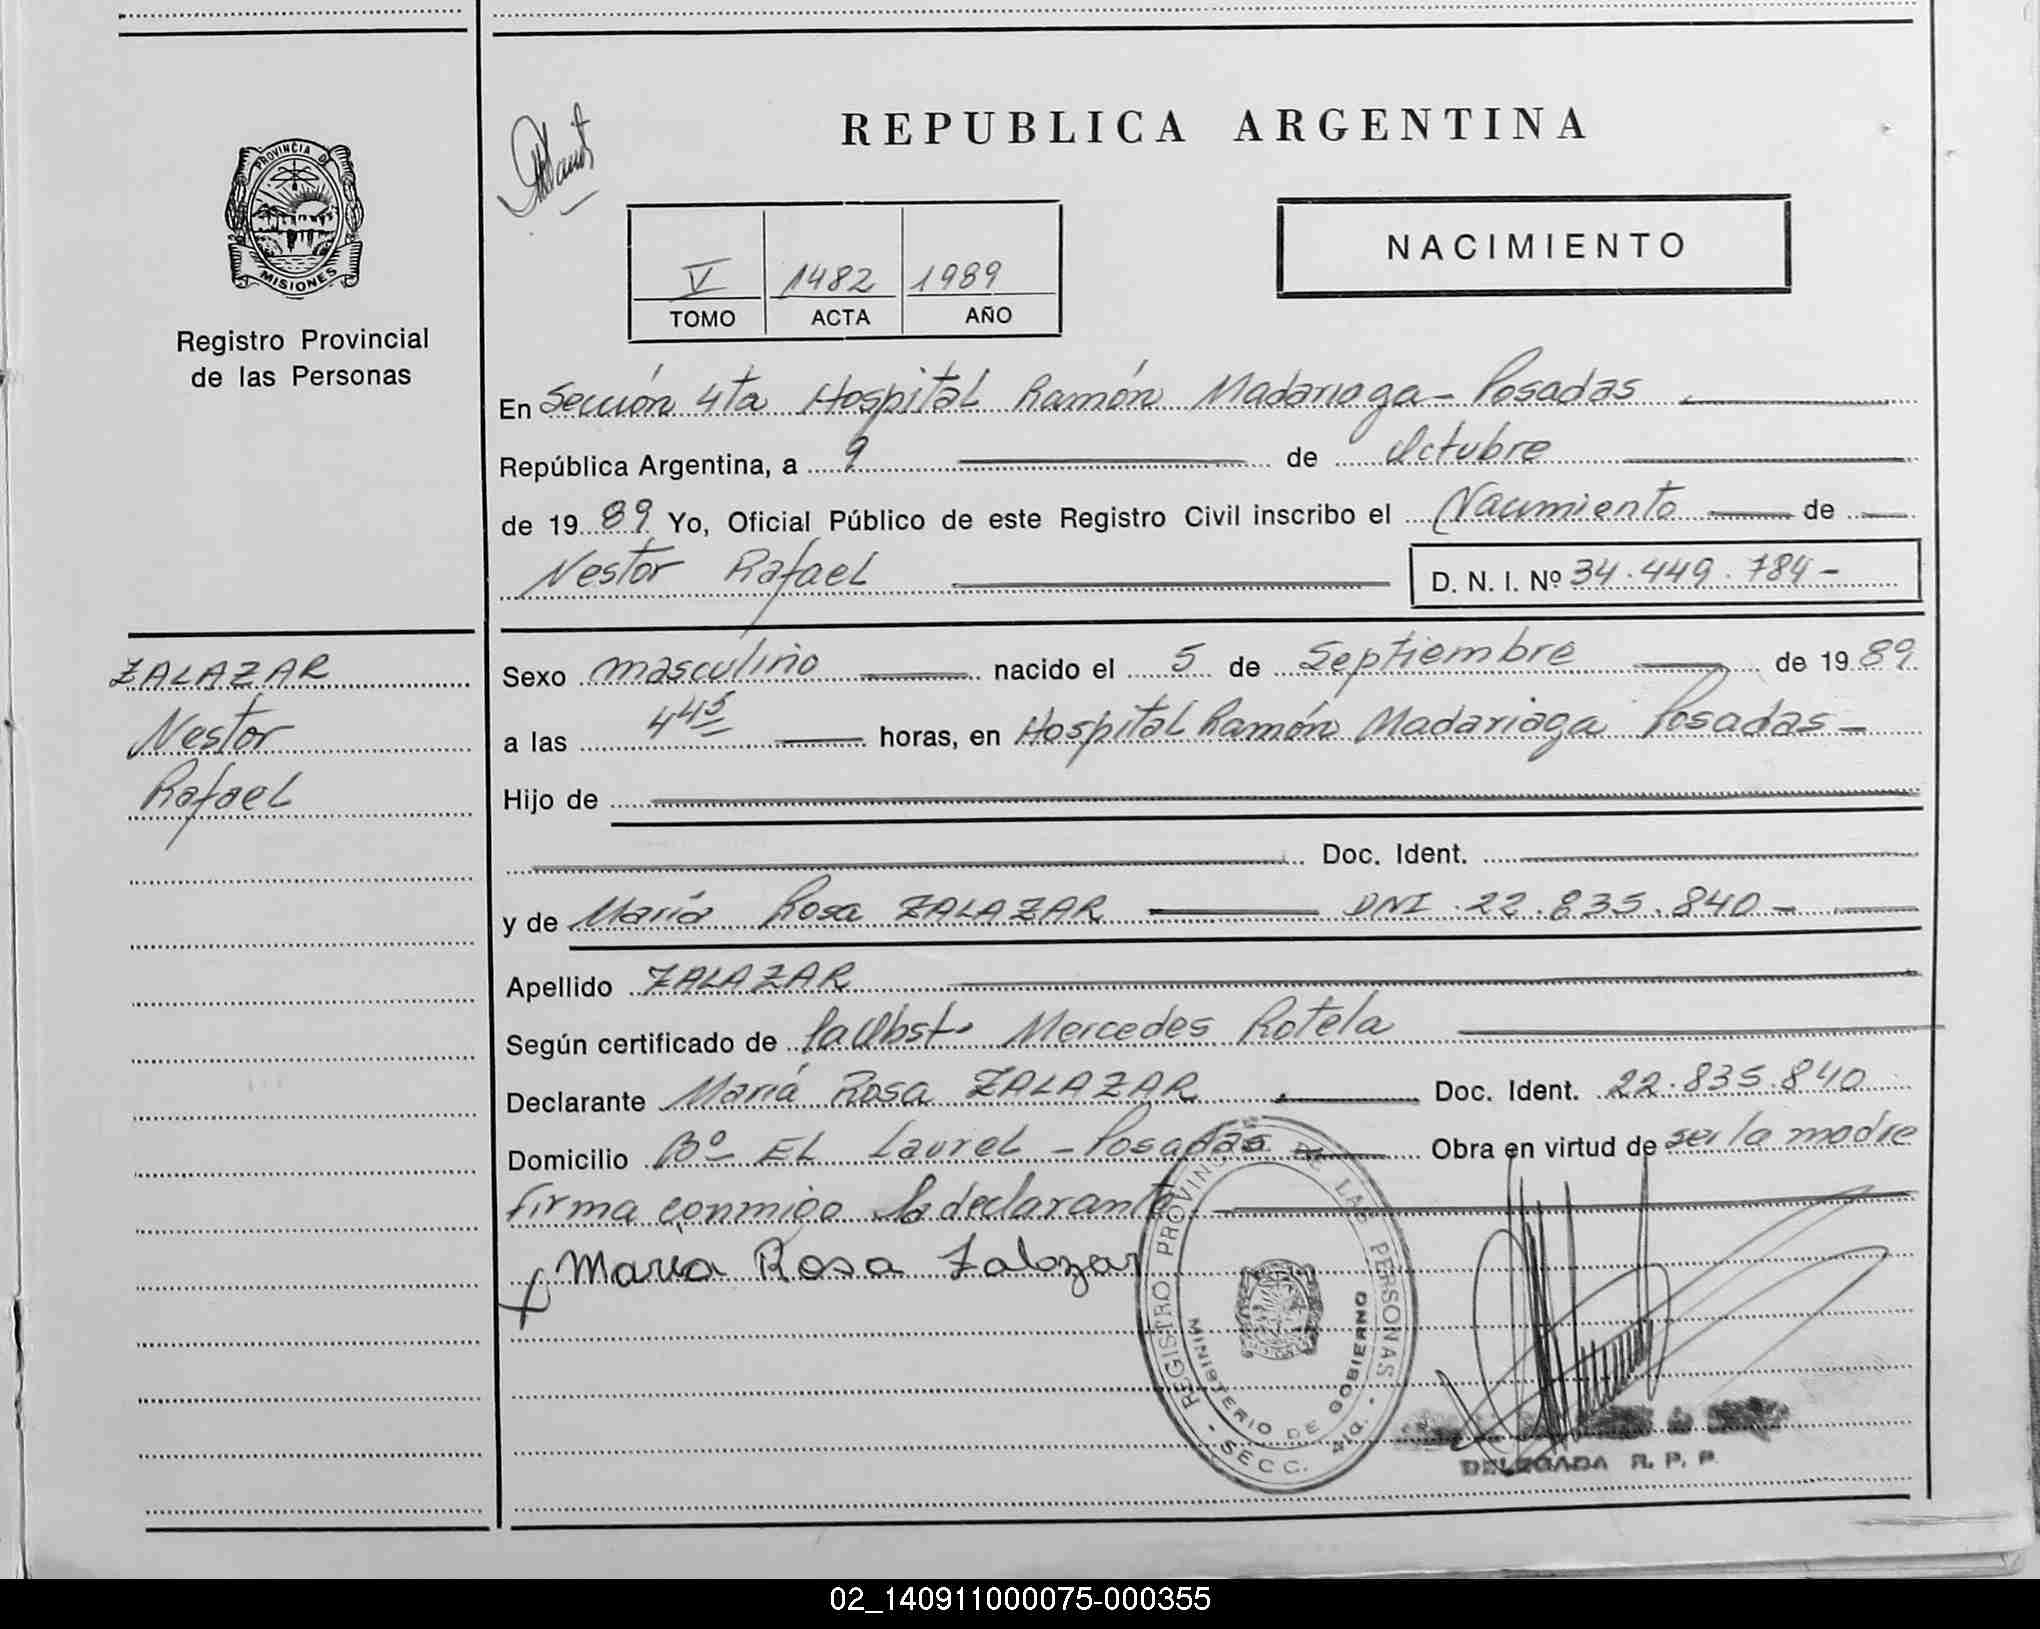 REPUBLICA ARGENTINA
PROVINCIA DE
MISIONES
Registro Provincial
de las Personas
V 1482 1989
TOMO ACTA AÑO
NACIMIENTO
En Sección 4ta Hospital Ramón Madariaga - Posadas
República Argentina, a 9 de Octubre
de 1989 Yo, Oficial Público de este Registro Civil inscribo el Nacimiento de
Nestor Rafael D. N. I. Nº 34.449.784-
ZALAZAR
Nestor
Rafael
Sexo masculino nacido el 5 de Septiembre de 1989
a las 4 45 horas, en Hospital Ramón Madariaga Posadas-
Hijo de
Doc. Ident.
y de María Rosa ZALAZAR DNI 22.835.840-
Apellido ZALAZAR
Según certificado de la Obst. Mercedes Rotela
Declarante María Rosa ZALAZAR Doc. Ident. 22.835.840
Domicilio Bº EL Laurel - Posadas Obra en virtud de ser la madre
firma conmigo la declarante
María Rosa Zalazar
REGISTRO PROVINCIAL DE LAS PERSONAS
MINISTERIO DE GOBIERNO
- SECC. 4ta. -
DELEGADA R. P. P.
02_140911000075-000355